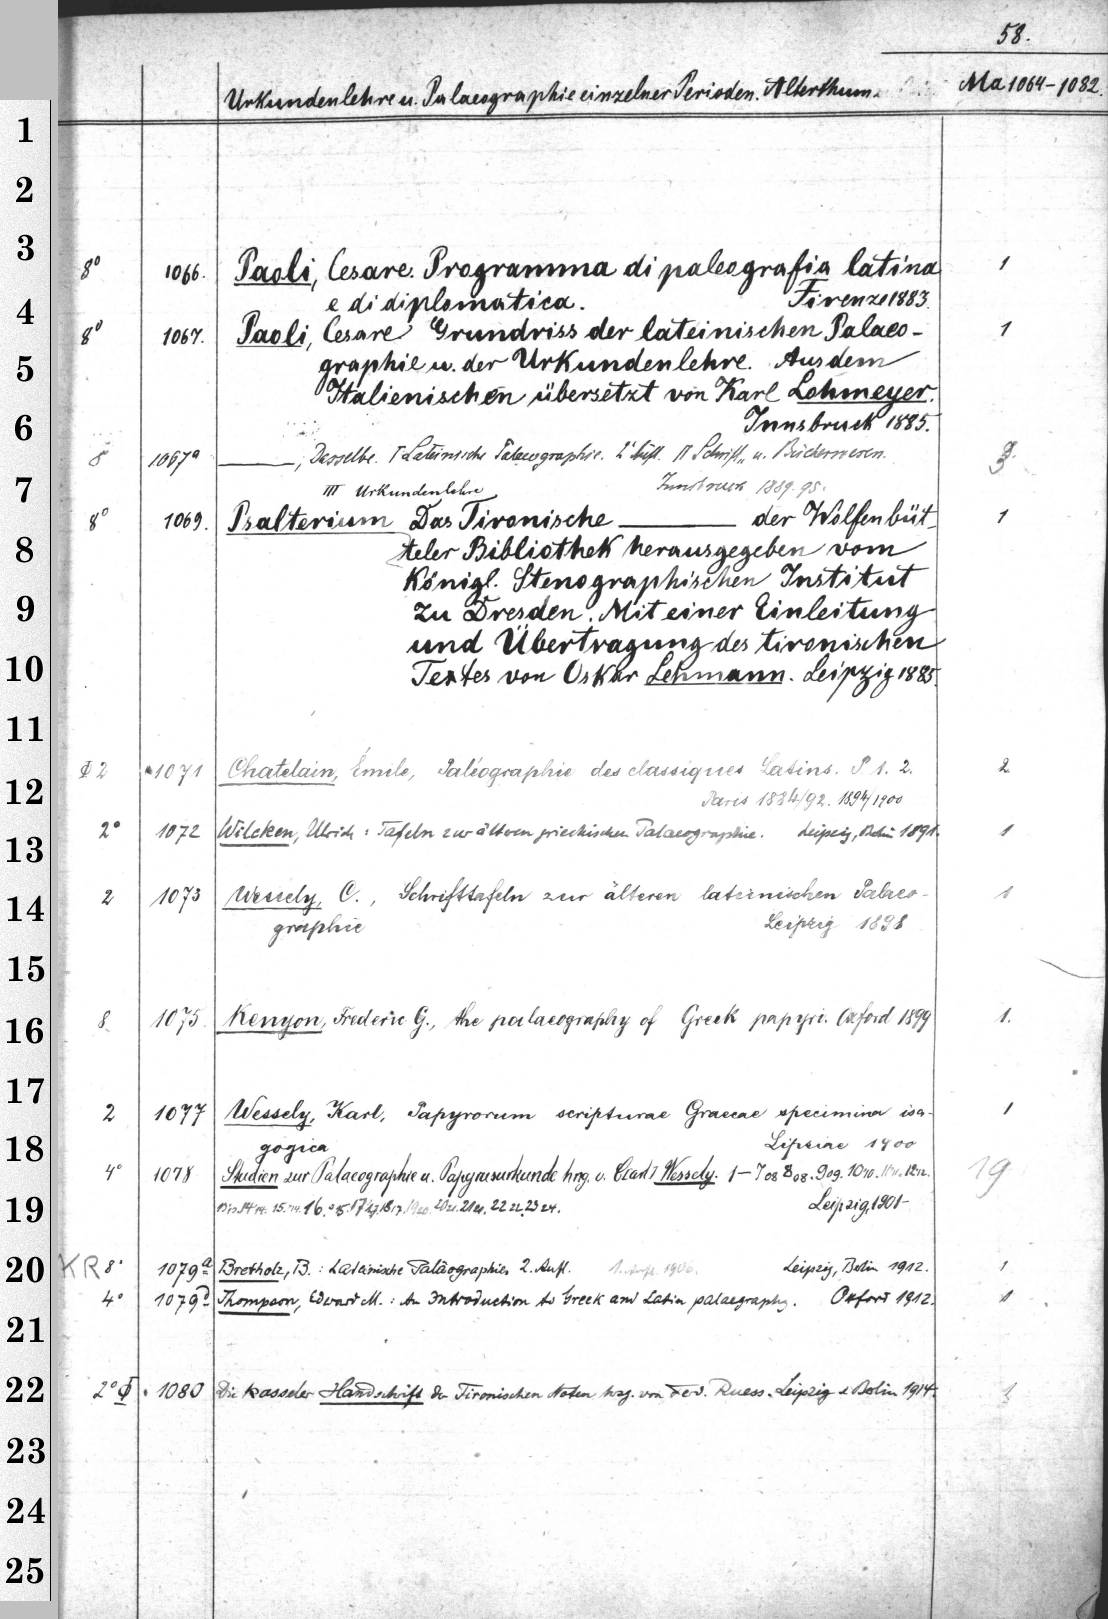 58.
Urkundenlehre u. Palaeographie einzelner Perioden. Alterthum. Ma 1064-1082.
1
2
3
8° 1066. Paoli, Cesare. Programma di paleografia latina 1
e di diplomatica. Firenze 1883.
4
8° 1067. Paoli, Cesare Grundriss der lateinischen Palaeo- 1
graphie u. der Urkundenlehre. Aus dem
5
Italienischen übersetzt von Karl Lohmeyer.
6
Innsbruck 1885.
8 1067a ———, Dasselbe. I Lateinische Palaeographie. 2. Aufl. II Schrift- u. Bücherwesen. 3
7
III Urkundenlehre Innsbruck 1889. 95.
8° 1069. Psalterium Das Tironische ——— der Wolfenbüt- 1
8
teler Bibliothek herausgegeben vom
Königl. Stenographischen Institut
9
zu Dresden. Mit einer Einleitung
und Übertragung des tironischen
10
Textes von Oskar Lehmann. Leipzig 1885.
11
Φ 2 1071 Chatelain, Émile, Paléographie des classiques Latins. P 1. 2. 2
12
Paris 1884/92. 1894/1900
2° 1072 Wilcken, Ulrich: Tafeln zur älteren griechischen Palaeographie. Leipzig, Berlin 1891. 1
13
2 1073 Wessely, C., Schrifttafeln zur älteren lateinischen Palaeo- 1
14
graphie Leipzig 1898
15
8 1075 Kenyon, Frederic G., the palaeography of Greek papyri. Oxford 1899 1.
16
17
2 1077 Wessely, Karl, Papyrorum scripturae Graecae specimina isa- 1
18
gogica Lipsiae 1900
4° 1078 Studien zur Palaeographie u. Papyrusurkunde hrsg. v. Carl Wessely. 1-7 08 8 08. 9 09. 10 10. 11 11. 12 12. 19
19
16. 17 22 22. 23 24. Leipzig, 1901-
20
KR 8° 1079a Bretholz, B.: Lateinische Paläographie. 2. Aufl. 1. Aufl. 1906. Leipzig, Berlin 1912. 1
4° 1079b Thompson, Edward M.: An Introduction to Greek and Latin palaeography. Oxford 1912. 1
21
22
2° Φ 1080 Die Kasseler Handschrift der Tironischen Noten hrsg. von Ferd. Ruess. Leipzig & Berlin 1914. 1
23
24
25